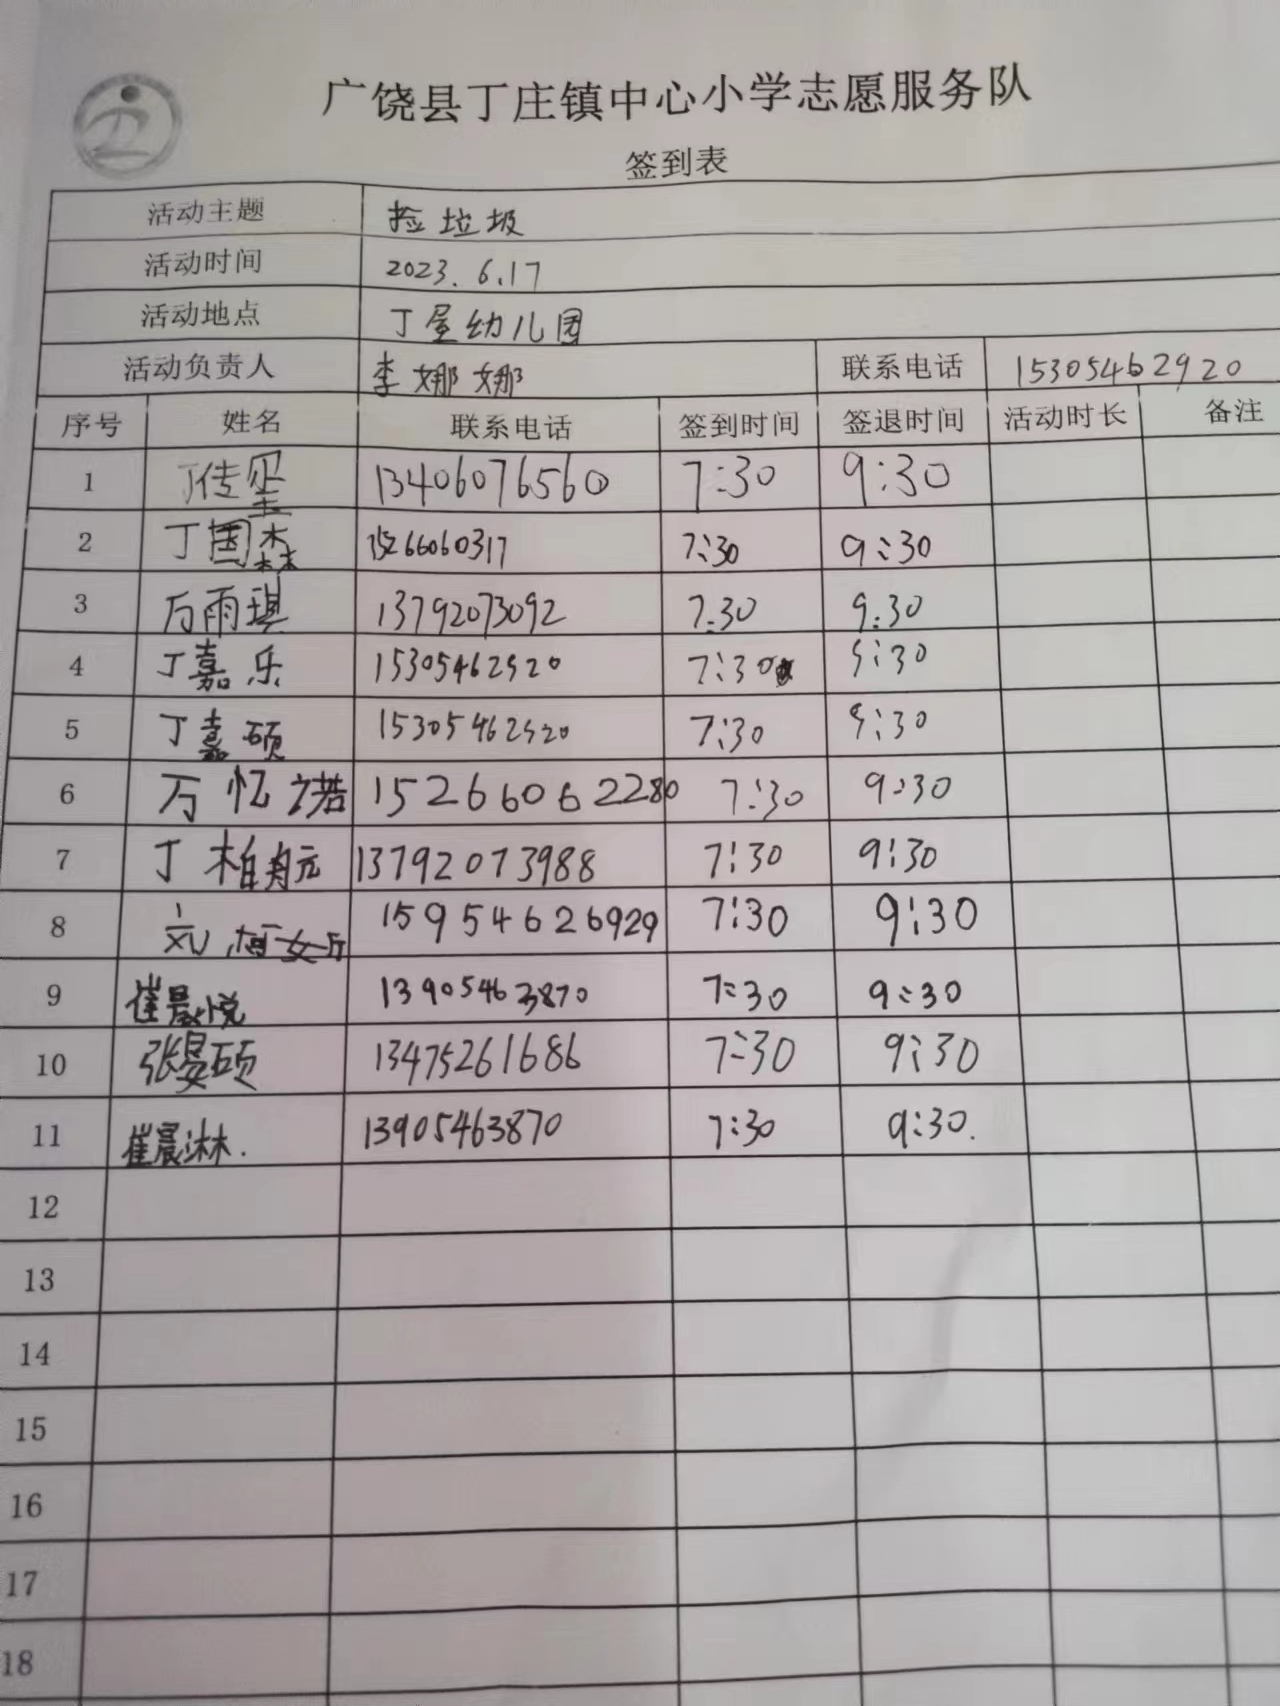 广饶县丁庄镇中心小学志愿服务队
签到表
活动主题 捡垃圾
活动时间 2023.6.17
活动地点 丁屋幼儿园
活动负责人 李娜娜 联系电话 15305462920
序号 姓名 联系电话 签到时间 签退时间 活动时长 备注
1 丁传玺 13406076560 7:30 9:30
2 丁国森 15266060317 7:30 9:30
3 万雨琪 13792073092 7:30 9:30
4 丁嘉乐 15305462920 7:30 9:30
5 丁嘉硕 15305462920 7:30 9:30
6 万忆诺 15266062280 7:30 9:30
7 丁柏航 13792073988 7:30 9:30
8 刘 15954626929 7:30 9:30
9 崔晨悦 13905463870 7:30 9:30
10 张晏硕 13475261686 7:30 9:30
11 崔晨淋. 13905463870 7:30 9:30.
12
13
14
15
16
17
18